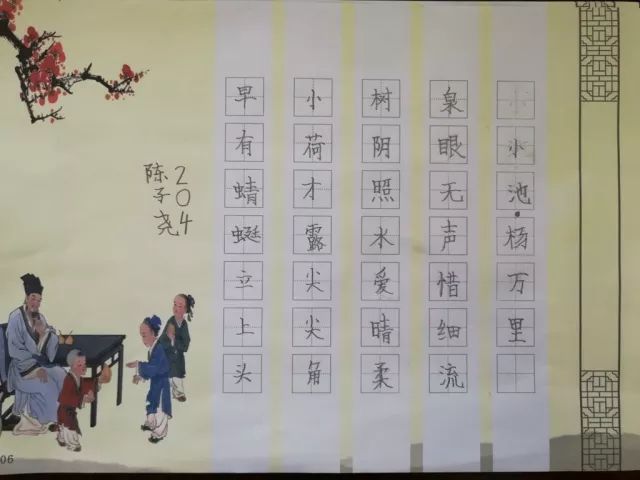 小池·杨万里
泉眼无声惜细流
树阴照水爱晴柔
小荷才露尖尖角
早有蜻蜓立上头
204
陈子尧
06